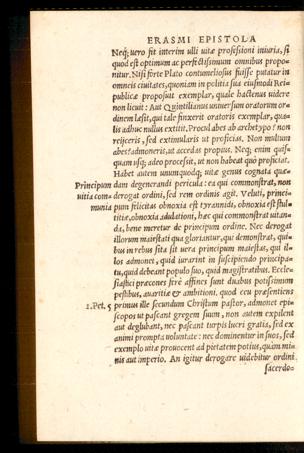 ERASMI EPISTOLA
Neq; uero fit interim ulli uitæ professioni iniuria, si
quod est optimum ac perfectissimum omnibus propo-
nitur. Nisi forte Plato contumeliosus fuisse putatur in
omneis ciuitates, quoniam in politia sua eiusmodi Rei-
publicæ proposuit exemplar, quale hactenus uidere
non licuit: Aut Quintilianus uniuersum oratorum or-
dinem læsit, qui tale finxerit oratoris exemplar, qua-
lis adhuc nullus extitit. Procul abes ab archetypo? non
reijceris, sed extimularis ut proficias. Non multum
abes? admoneris, ut accedas propius. Neq; enim quis-
quam usq; adeo processit, ut non habeat quò proficiat.
Habet autem unumquodq; uitæ genus cognata quæ-
Principum dam degenerandi pericula: ea qui commonstrat, non
uitia com- derogat ordini, sed rem ordinis agit. Veluti, princi-
munia pum felicitas obnoxia est tyrannidi, obnoxia est stul-
titiæ, obnoxia adulationi, hæc qui commonstrat uitan-
da, bene meretur de principum ordine. Nec derogat
illorum maiestati qua gloriantur, qui demonstrat, qui-
bus in rebus sita sit uera principum maiestas, qui il-
los admonet, quid iurarint in suscipiendo principa-
tu, quid debeant populo suo, quid magistratibus. Eccle-
siastici præcones ferè affines sunt duabus potissimum
pestibus, auaritiæ & ambitioni, quod ceu præsentiens
1. Pet. 5 primus ille secundum Christum pastor, admonet epi-
scopos ut pascant gregem suum, non autem expilent
aut deglubant, nec pascant turpis lucri gratia, sed ex
animi prompta uoluntate: nec dominentur in suos, sed
exemplo uitæ prouocent ad pietatem potius, quàm mi-
nis aut imperio. An igitur derogare uidebitur ordini
sacerdo-